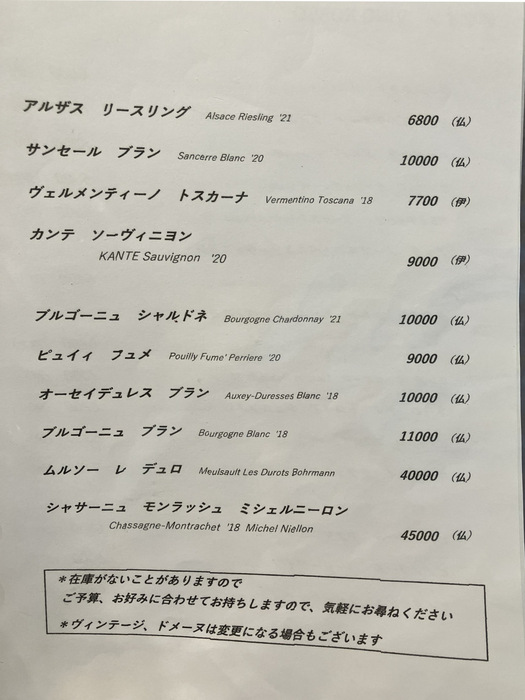 アルザス リースリング Alsace Riesling '21 6800 (仏)
サンセール ブラン Sancerre Blanc '20 10000 (仏)
ヴェルメンティーノ トスカーナ Vermentino Toscana '18 7700 (伊)
カンテ ソーヴィニヨン
KANTE Sauvignon '20 9000 (伊)
ブルゴーニュ シャルドネ Bourgogne Chardonnay '21 10000 (仏)
ピュイィ フュメ Pouilly Fume' Perriere '20 9000 (仏)
オーセイデュレス ブラン Auxey-Duresses Blanc '18 10000 (仏)
ブルゴーニュ ブラン Bourgogne Blanc '18 11000 (仏)
ムルソー レ デュロ Meulsault Les Durots Bohrmann 40000 (仏)
シャサーニュ モンラッシュ ミシェルニーロン
Chassagne-Montrachet '18 Michel Niellon 45000 (仏)
＊在庫がないことがありますので
ご予算、お好みに合わせてお持ちしますので、気軽にお尋ねください
＊ヴィンテージ、ドメーヌは変更になる場合もございます